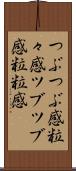 つぶつぶ感粒
々感ツブツブ
感粒粒感